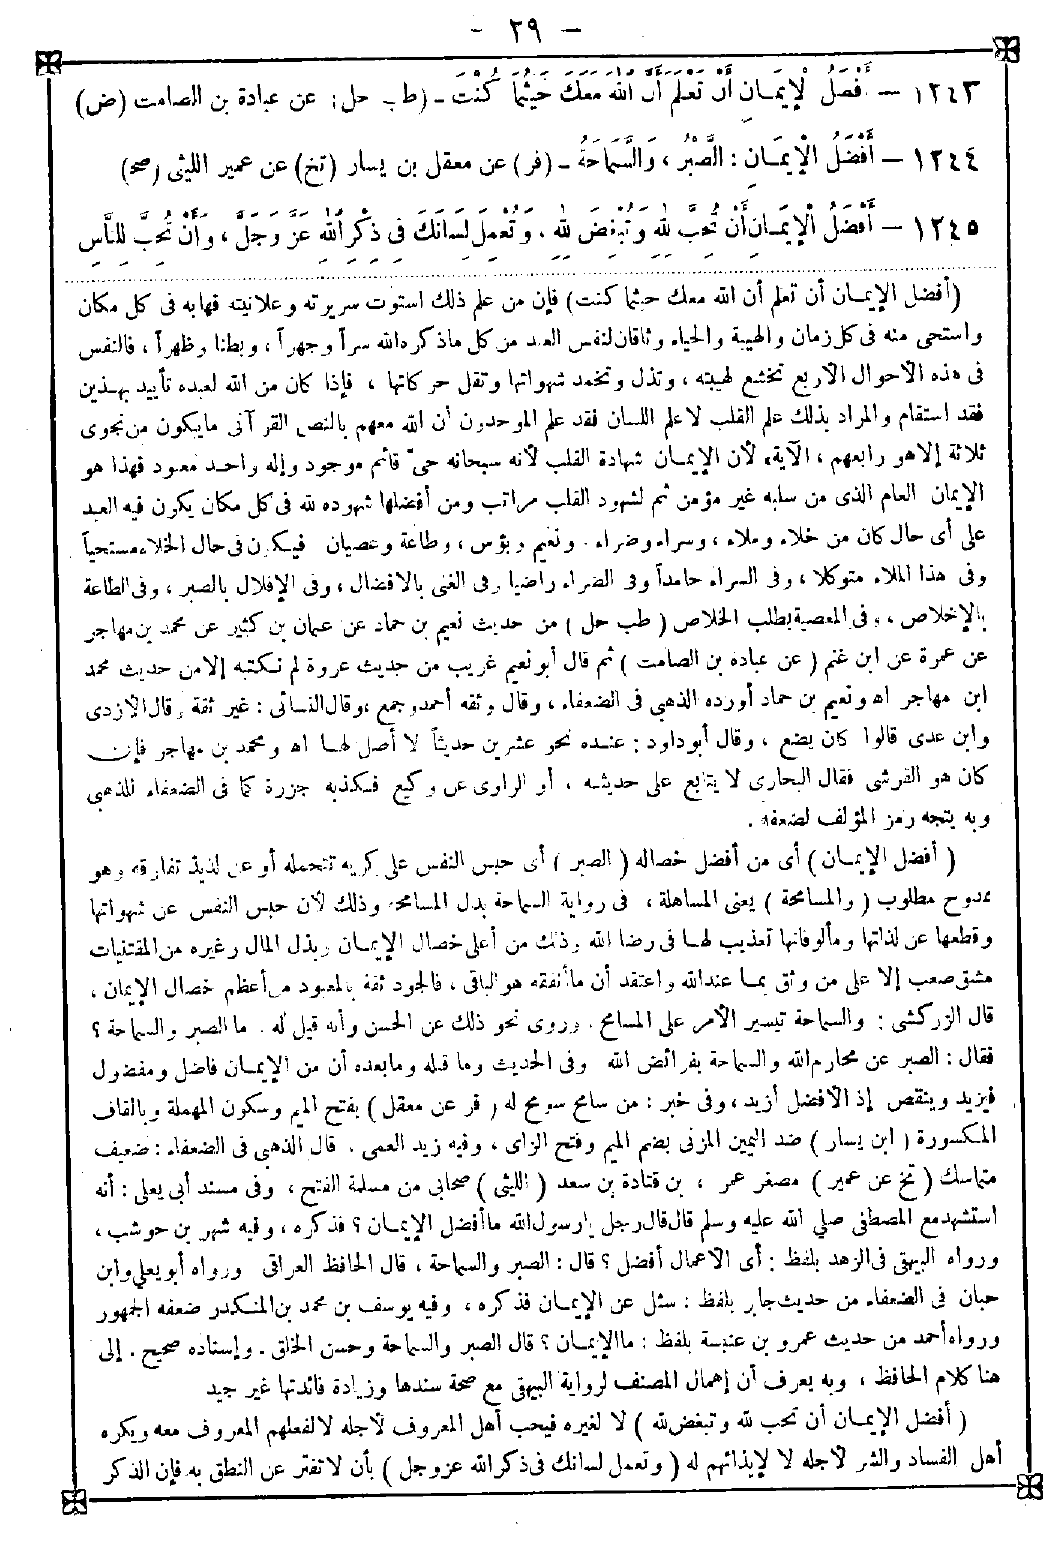 - ٢٩ -
١٢٤٣ - أَفْضَلُ الْإِيمَانِ أَنْ تَعْلَمَ أَنَّ اللهَ مَعَكَ حَيْثُمَا كُنْتَ - (طب حل) عن عبادة بن الصامت (ض)
١٢٤٤ - أَفْضَلُ الْإِيمَانِ: الصَّبْرُ، وَالسَّمَاحَةُ - (فر) عن معقل بن يسار (تخ) عن عمير الليثى (صح)
١٢٤٥ - أَفْضَلُ الْإِيمَانِ أَنْ تُحِبَّ لِلهِ وَتُبْغِضَ لِلهِ، وَتُعْمِلَ لِسَانَكَ فِى ذِكْرِ اللهِ عَزَّ وَجَلَّ، وَأَنْ تُحِبَّ لِلنَّاسِ
(أفضل الإيمـان أن تعلم أن الله معك حيثما كنت) فإن من علم ذلك استوت سريرته وعلانيته فهابه فى كل مكان
واستحى منه فى كل زمان والهيبة والحياء وثاقان لنفس العبد من كل ما ذكره الله سراً وجهراً، وبطنا وظهراً، فالنفس
فى هذه الأحوال الأربع تخشع لهيبته، وتذل وتخمد شهواتها وتقل حركاتها، فإذا كان من الله لعبده تأييد بهـذين
فقد استقام والمراد بذلك علم القلب لا علم اللسان فقد علم الموحدون أن الله معهم بالنص القرآنى ما يكون من نجوى
ثلاثة إلا هو رابعهم، الآية، لأن الإيمـان شهادة القلب لأنه سبحانه حىّ قائم موجود وإله واحد معبود فهذا هو
الإيمان العام الذى من سلبه غير مؤمن ثم لشهود القلب مراتب ومن أفضلها شهوده لله فى كل مكان يكون فيه العبد
على أى حال كان من خلاء وملاء، وسراء وضراء، ونعيم وبؤس، وطاعة وعصيان فيكون فى حال الخلاء مستحيياً
وفى هذا الملاء متوكلا، وفى السراء حامداً وفى الضراء راضيا وفى الغنى بالافضال، وفى الإقلال بالصبر، وفى الطاعة
بالإخلاص، وفى المعصية بطلب الخلاص (طب حل) من حديث نعيم بن حماد عن عثمان بن كثير عن محمد بن مهاجر
عن عمرة عن ابن غنم (عن عباده بن الصامت) ثم قال أبو نعيم غريب من حديث عروة لم نكتبه إلا من حديث محمد
ابن مهاجر اه ونعيم بن حماد أورده الذهبى فى الضعفاء، وقال وثقه أحمد وجمع، وقال النسائى: غير ثقة وقال الازدى
وابن عدى قالوا كان يضع، وقال أبو داود: عنده نحو عشرين حديثاً لا أصل لهـا اه ومحمد بن مهاجر فإن
كان هو القرشى فقال البخارى لا يتابع على حديثه، أو الراوى عن وكيع فكذبه جزرة كما فى الضعفاء للذهبى
وبه يتجه رمز المؤلف لضعفه.
(أفضل الإيمـان) أى من أفضل خصاله (الصبر) أى حبس النفس على كريه تتحمله أو عن لذيذ تفارقه وهو
ممدوح مطلوب (والمسامحة) يعنى المساهلة، فى رواية السماحة بدل المسامحة وذلك لأن حبس النفس عن شهواتها
وقطعها عن لذاتها ومألوفاتها تعذيب لهـا فى رضا الله وذلك من أعلى خصال الإيمـان وبذل المال وغيره من المقتنيات
مشق صعب إلا على من وثق بمـا عند الله واعتقد أن ما أنفقه هو الباقى، فالجود ثقة بالمعبود من أعظم خصال الإيمان،
قال الزركشى: والسماحة تيسير الأمر على المسامح. وروى نحو ذلك عن الحسن وأنه قيل له. ما الصبر والسماحة؟
فقال: الصبر عن محارم الله والسماحة بفرائض الله وفى الحديث وما قبله وما بعده أن من الإيمـان فاضل ومفضول
فيزيد وينقص إذ الأفضل أزيد، وفى خبر: من سامح سومح له (فر عن معقل) بفتح الميم وسكون المهملة وبالقاف
المكسورة (ابن يسار) ضد اليمين المزنى بضم الميم وفتح الزاى، وفيه زيد العمى. قال الذهبى فى الضعفاء: ضعيف
متماسك (تخ عن عمير) مصغر عمر، بن قتادة بن سعد (الليثى) صحابى من مسلمة الفتح، وفى مسند أبى يعلى: أنه
استشهد مع المصطفى صلى الله عليه وسلم قال قال رجل يا رسول الله ما أفضل الإيمـان؟ فذكره، وفيه شهر بن حوشب،
ورواه البيهقى فى الزهد بلفظ: أى الأعمال أفضل؟ قال: الصبر والسماحة، قال الحافظ العراقى ورواه أبو يعلى وابن
حبان فى الضعفاء من حديث جابر بلفظ: سئل عن الإيمـان فذكره، وفيه يوسف بن محمد بن المنكدر ضعفه الجمهور
ورواه أحمد من حديث عمرو بن عنبسة بلفظ: ما الإيمـان؟ قال الصبر والسماحة وحسن الخلق. وإسناده صحيح. إلى
هنا كلام الحافظ، وبه يعرف أن إهمال المصنف لرواية البيهقى مع صحة سندها وزيادة فائدتها غير جيد
(أفضل الإيمـان أن تحب لله وتبغض لله) لا لغيره فيحب أهل المعروف لأجله لا لفعلهم المعروف معه ويكره
أهل الفساد والشر لأجله لا لإيذائهم له (وتعمل لسانك فى ذكر الله عز وجل) بأن لا تفتر عن النطق به فإن الذكر